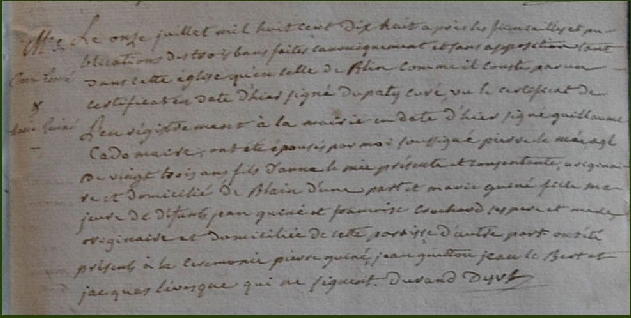 Le onze juillet mil huit cent dix huit après les fiancailles et pu-
blications des trois bans faites canoniquement et sans opposition tant
dans cette église qu'en celle de Blin comme il conste par un
certificat en date d'hier signé dupaty curé, vu le certificat de
l'enrégistrement à la mairie en date d'hier signé guillaume
maire, ont été épousés par moi soussigné pierre le
de vingt trois ans fils d'anne le mée présente et consentente, originai-
re et domicilié de Blain d'une part et marie quéné fille ma-
jeure de défunts jean quéné et francoise couchard ses pere et mere
originaire et domiciliée de cette paroisse d'autre part ont été
présents à la ceremonie pierre quéné, jean jean le Bert et
jacques lévesque qui ne signent. Durand